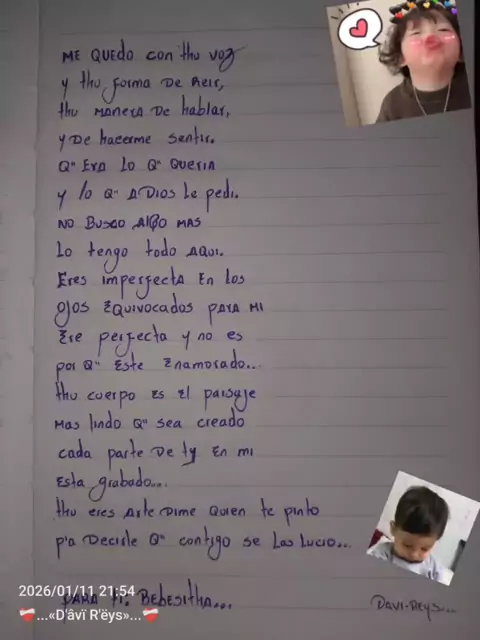 ME QUEDO con thu voz
y thu forma De Reir,
thu MANERA De hablar,
y De hacerme sentir.
Q" ERA lo Q" QUERIA
y lo Q" A DIOS Le pedi.
NO BUSCO Algo MAS
Lo tengo todo AQUI.
Eres imperfecta En los
ojos EQUIVOCADOS PARA MI
Ere perfecta y no es
por Q" Este Enamorado...
thu cuerpo es El paisaje
MAS lindo Q" sea creado
cada parte De ty En mi
Esta grabado...
thu eres Arte Dime Quien te pinto
p'a Decirle Q" contigo se Las Lucio...
2026/01/11 21:54
❤️‍🩹...«D'âvï R'ëys»...❤️‍🩹
PARA ti. BEBESITHA...
DAVI-REYS...